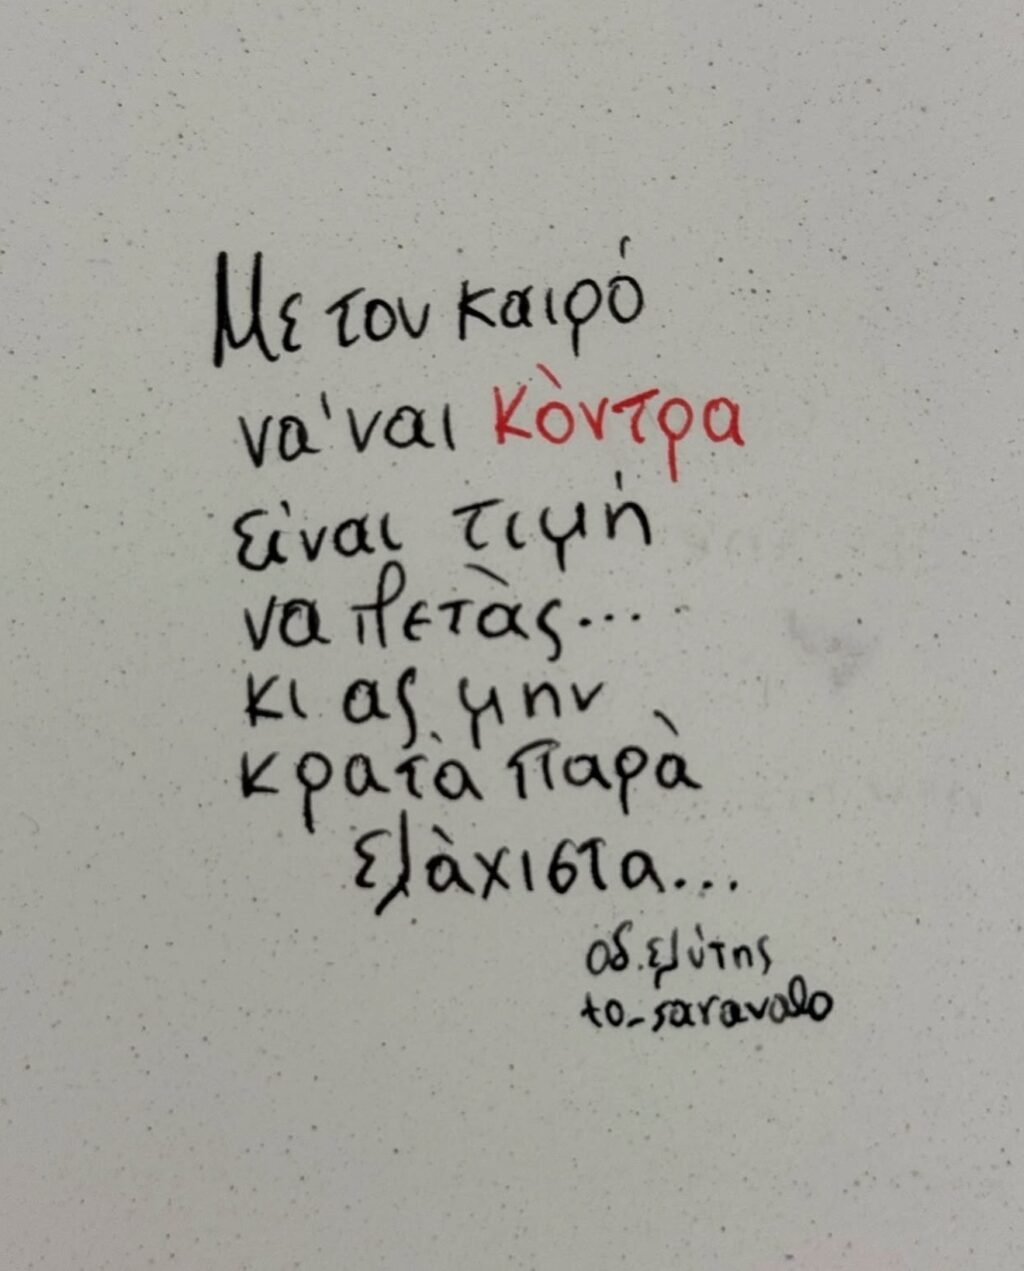 Με τον καιρό
να 'ναι κόντρα
είναι τιμή
να πετάς...
κι ας μην
κρατά παρά
ελάχιστα...
οδ. ελύτης
to_saravalo